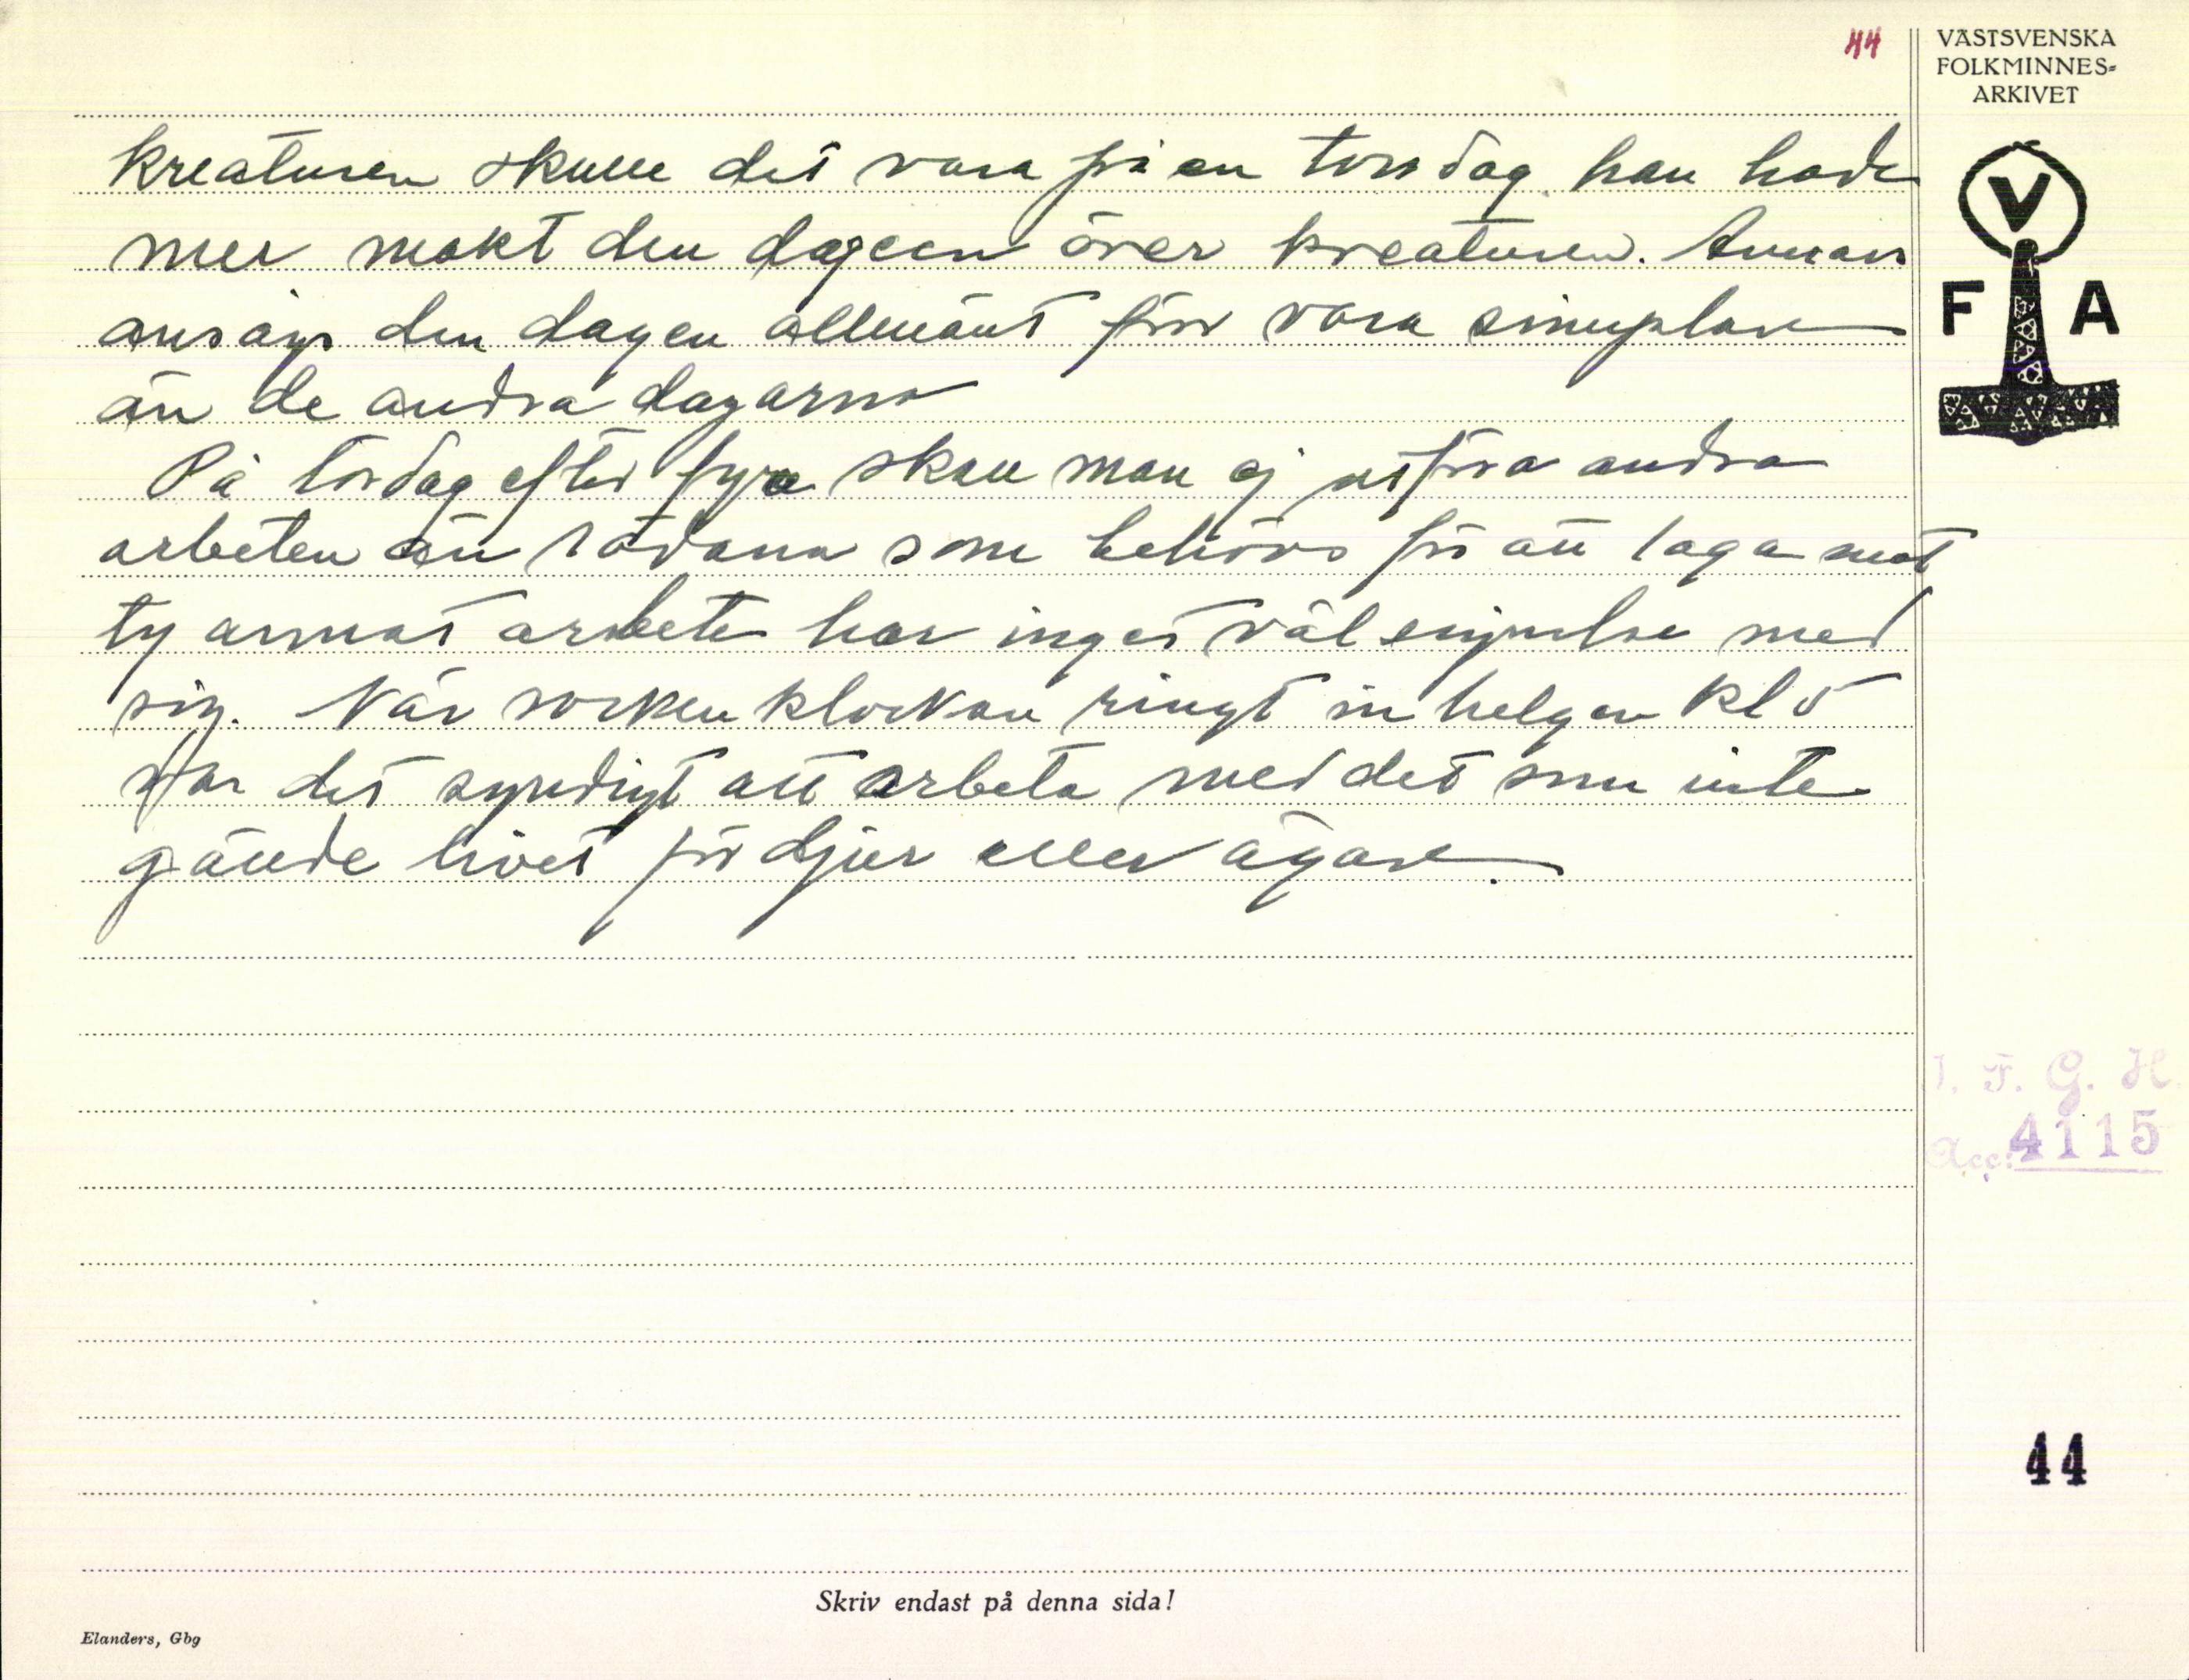 44
VÄSTSVENSKA
FOLKMINNES-
ARKIVET
kreaturen skulle det vara på en torsdag han hade
mer makt den dageen över kreaturen. Annars
ansågs den dagen allmänt för vara simplare
än de andra dagarna
På lördag efter fyra skall man ej utföra andra
arbeten än sådana som behövs för att laga mat
ty annat arbete har inget välsignelse med
sig. När sockenklockan ringt in helgen kl 5
var det syndigt att arbeta med det som inte
gällde livet för djur eller ägare.
V
F A
I. F. G. H.
Acc: 4115
44
Skriv endast på denna sida!
Elanders, Gbg